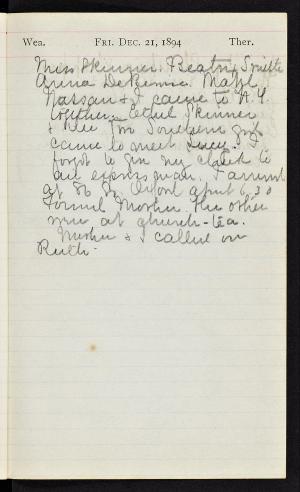 Wea. FRI. DEC. 21, 1894 Ther.
Miss Skinner, Beatrix
Anna Mabel
Nassau & I came to N.Y.
together. Ethel Skinner
& her two
came to meet
forgot to give my check to
an expressman. I arrived
at 86 St. about 6.30
Found Mother. The other
were at church-tea.
Mother & I called on
Ruth.